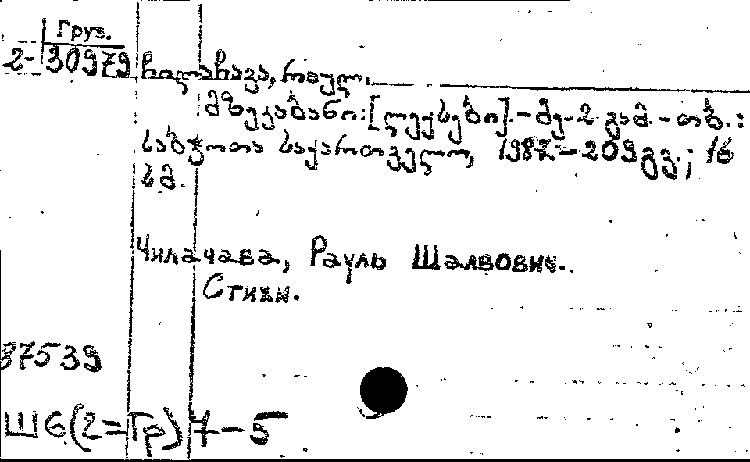 Груз.
2-30979
ჩილაჩავა, რაულ.
მზეკაბანი: [ლექსები]. - მე-2 გამ. - თბ. :
საბჭოთა საქართველო, 1987 - 209 გვ.; 16
სმ.
Чилачава, Рауль Шалвович.
Стихи.
87539
Ш6(2=Гр)7-5